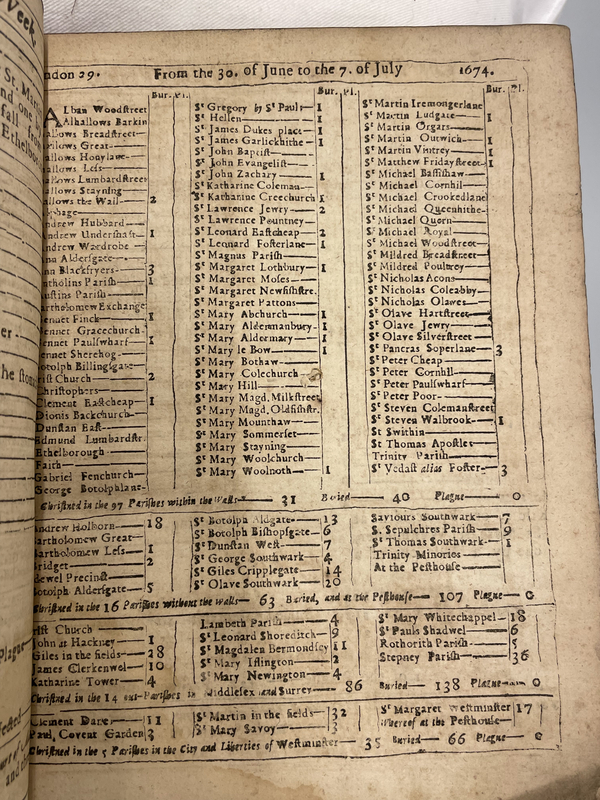 ndon 29. From the 30. of June to the 7. of July 1674.
Bur. Pl.
Lban Woodstreet
Alhallows Barkin
allows Breadstreet
llows Great
allows Honylane
allows Less
allows Lumbardstreet
allows Stayning
allows the Wall 2
phage
ndrew Hubbard
Andrew Undershaft 1
ndrew Wardrobe
nn Aldersgate
nn Blackfryers 3
ntholins Parish 1
ustins Parish
artholomew Exchange
ennet Finck 1
ennet Gracechurch
ennet Paulswharf 1
ennet Sherehog
otolph Billingsgate
rist Church 2
hristophers
Clement Eastcheap 1
Dionis Backchurch
Dunstan East
Edmund Lumbardstr.
Ethelborough
Faith
Gabriel Fenchurch
George Botolphlane
Bur. Pl.
Sᵗ Gregory by Sᵗ Pauls 1
Sᵗ Hellen 1
Sᵗ James Dukes place 1
Sᵗ James Garlickhithe 1
Sᵗ John Baptist
Sᵗ John Evangelist
Sᵗ John Zachary 1
Sᵗ Katharine Coleman
Sᵗ Katharine Creechurch 1
Sᵗ Lawrence Jewry 2
Sᵗ Lawrence Pountney
Sᵗ Leonard Eastcheap 2
Sᵗ Leonard Fosterlane 1
Sᵗ Magnus Parish
Sᵗ Margaret Lothbury 1
Sᵗ Margaret Moses
Sᵗ Margaret Newfishstre.
Sᵗ Margaret Pattons
Sᵗ Mary Abchurch 1
Sᵗ Mary Aldermanbury 1
Sᵗ Mary Aldermary 1
Sᵗ Mary le Bow 1
Sᵗ Mary Bothaw
Sᵗ Mary Colechurch
Sᵗ Mary Hill
Sᵗ Mary Magd. Milkstreet
Sᵗ Mary Magd. Oldfishstr.
Sᵗ Mary Mounthaw
Sᵗ Mary Sommerset
Sᵗ Mary Stayning
Sᵗ Mary Woolchurch
Sᵗ Mary Woolnoth 1
Bur. Pl.
Sᵗ Martin Iremongerlane
Sᵗ Martin Ludgate 1
Sᵗ Martin Orgars
Sᵗ Martin Outwich 1
Sᵗ Martin Vintrey 1
Sᵗ Matthew Fridaystreet 1
Sᵗ Michael Bassishaw
Sᵗ Michael Cornhil
Sᵗ Michael Crookedlane
Sᵗ Michael Queenhithe
Sᵗ Michael Quern
Sᵗ Michael Royal
Sᵗ Michael Woodstreet
Sᵗ Mildred Breadstreet
Sᵗ Mildred Poultrey
Sᵗ Nicholas Acons
Sᵗ Nicholas Coleabby
Sᵗ Nicholas Olaves
Sᵗ Olave Hartstreet
Sᵗ Olave Jewry
Sᵗ Olave Silverstreet
Sᵗ Pancras Soperlane 3
Sᵗ Peter Cheap
Sᵗ Peter Cornhil
Sᵗ Peter Paulswharf
Sᵗ Peter Poor
Sᵗ Steven Colemanstreet
Sᵗ Steven Walbrook 1
St Swithin
St Thomas Apostles
Trinity Parish
Sᵗ Vedast alias Foster 3
Christned in the 97 Parishes within the Walls 31 Buried 40 Plague 0
Andrew Holborn 18
artholomew Great
artholomew Less 1
ridget 2
dewel Precinct
otolph Aldersgate 5
Sᵗ Botolph Aldgate 13
Sᵗ Botolph Bishopsgate 6
Sᵗ Dunstan West 7
Sᵗ George Southwark 4
Sᵗ Giles Cripplegate 14
Sᵗ Olave Southwark 20
Saviours Southwark 7
S. Sepulchres Parish 9
Sᵗ Thomas Southwark 1
Trinity Minories
At the Pesthouse
Christned in the 16 Parishes without the Walls 63 Buried, and at the Pesthouse 107 Plague 0
rist Church
John at Hackney 1
Giles in the fields 28
James Clerkenwel 10
Katharine Tower 4
Lambeth Parish 4
Sᵗ Leonard Shoreditch 9
Sᵗ Magdalen Bermondsey 11
Sᵗ Mary Islington 2
Sᵗ Mary Newington 4
Sᵗ Mary Whitechappel 18
Sᵗ Pauls Shadwel 6
Rothorith Parish 5
Stepney Parish 36
Christned in the 14 out-Parishes in Middlesex and Surrey 86 Buried 138 Plague 0
Clement Dane 11
Paul, Covent Garden 3
Sᵗ Martin in the fields 32
Sᵗ Mary Savoy 3
Sᵗ Margaret Westminster 17
Whereof at the Pesthouse
Christned in the 5 Parishes in the City and Liberties of Westminster 35 Buried 66 Plague 0